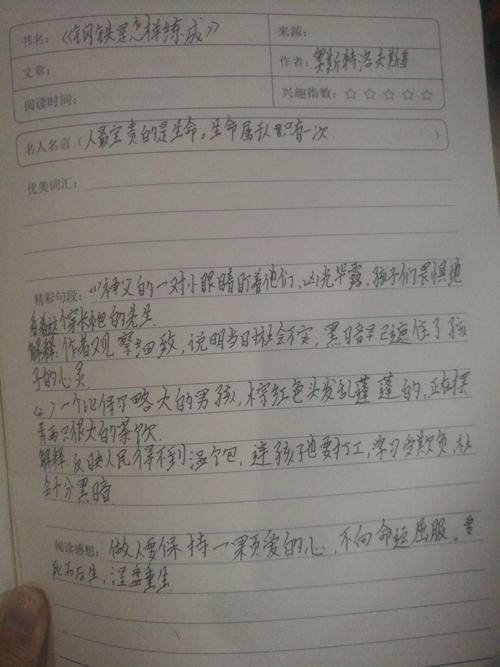 书名：《钢铁是怎样练成》
来源：
文章：
作者：奥斯特洛夫斯基
阅读时间：
兴趣指数：☆ ☆ ☆ ☆ ☆
名人名言（人最宝贵的是生命。生命属于人只有一次）
优美词汇：
精彩句段：(1)神父的一对小眼睛盯着他们，凶光毕露，孩子们畏惧地
看着这个穿长袍的先生
解释：作者观察细致，说明当日社会不安，黑暗早已遮住了孩
子的心灵
(2)一个比保尔略大的男孩，棕红色头发乱蓬蓬的，正在摆
弄两只很大的茶炊
解释：反映人民得不到温饱，连孩子也要打工，学习受欺负，社
会十分黑暗
阅读感想：做人要保持一颗爱的心，不向命运屈服。要
死而后生，涅盘重生